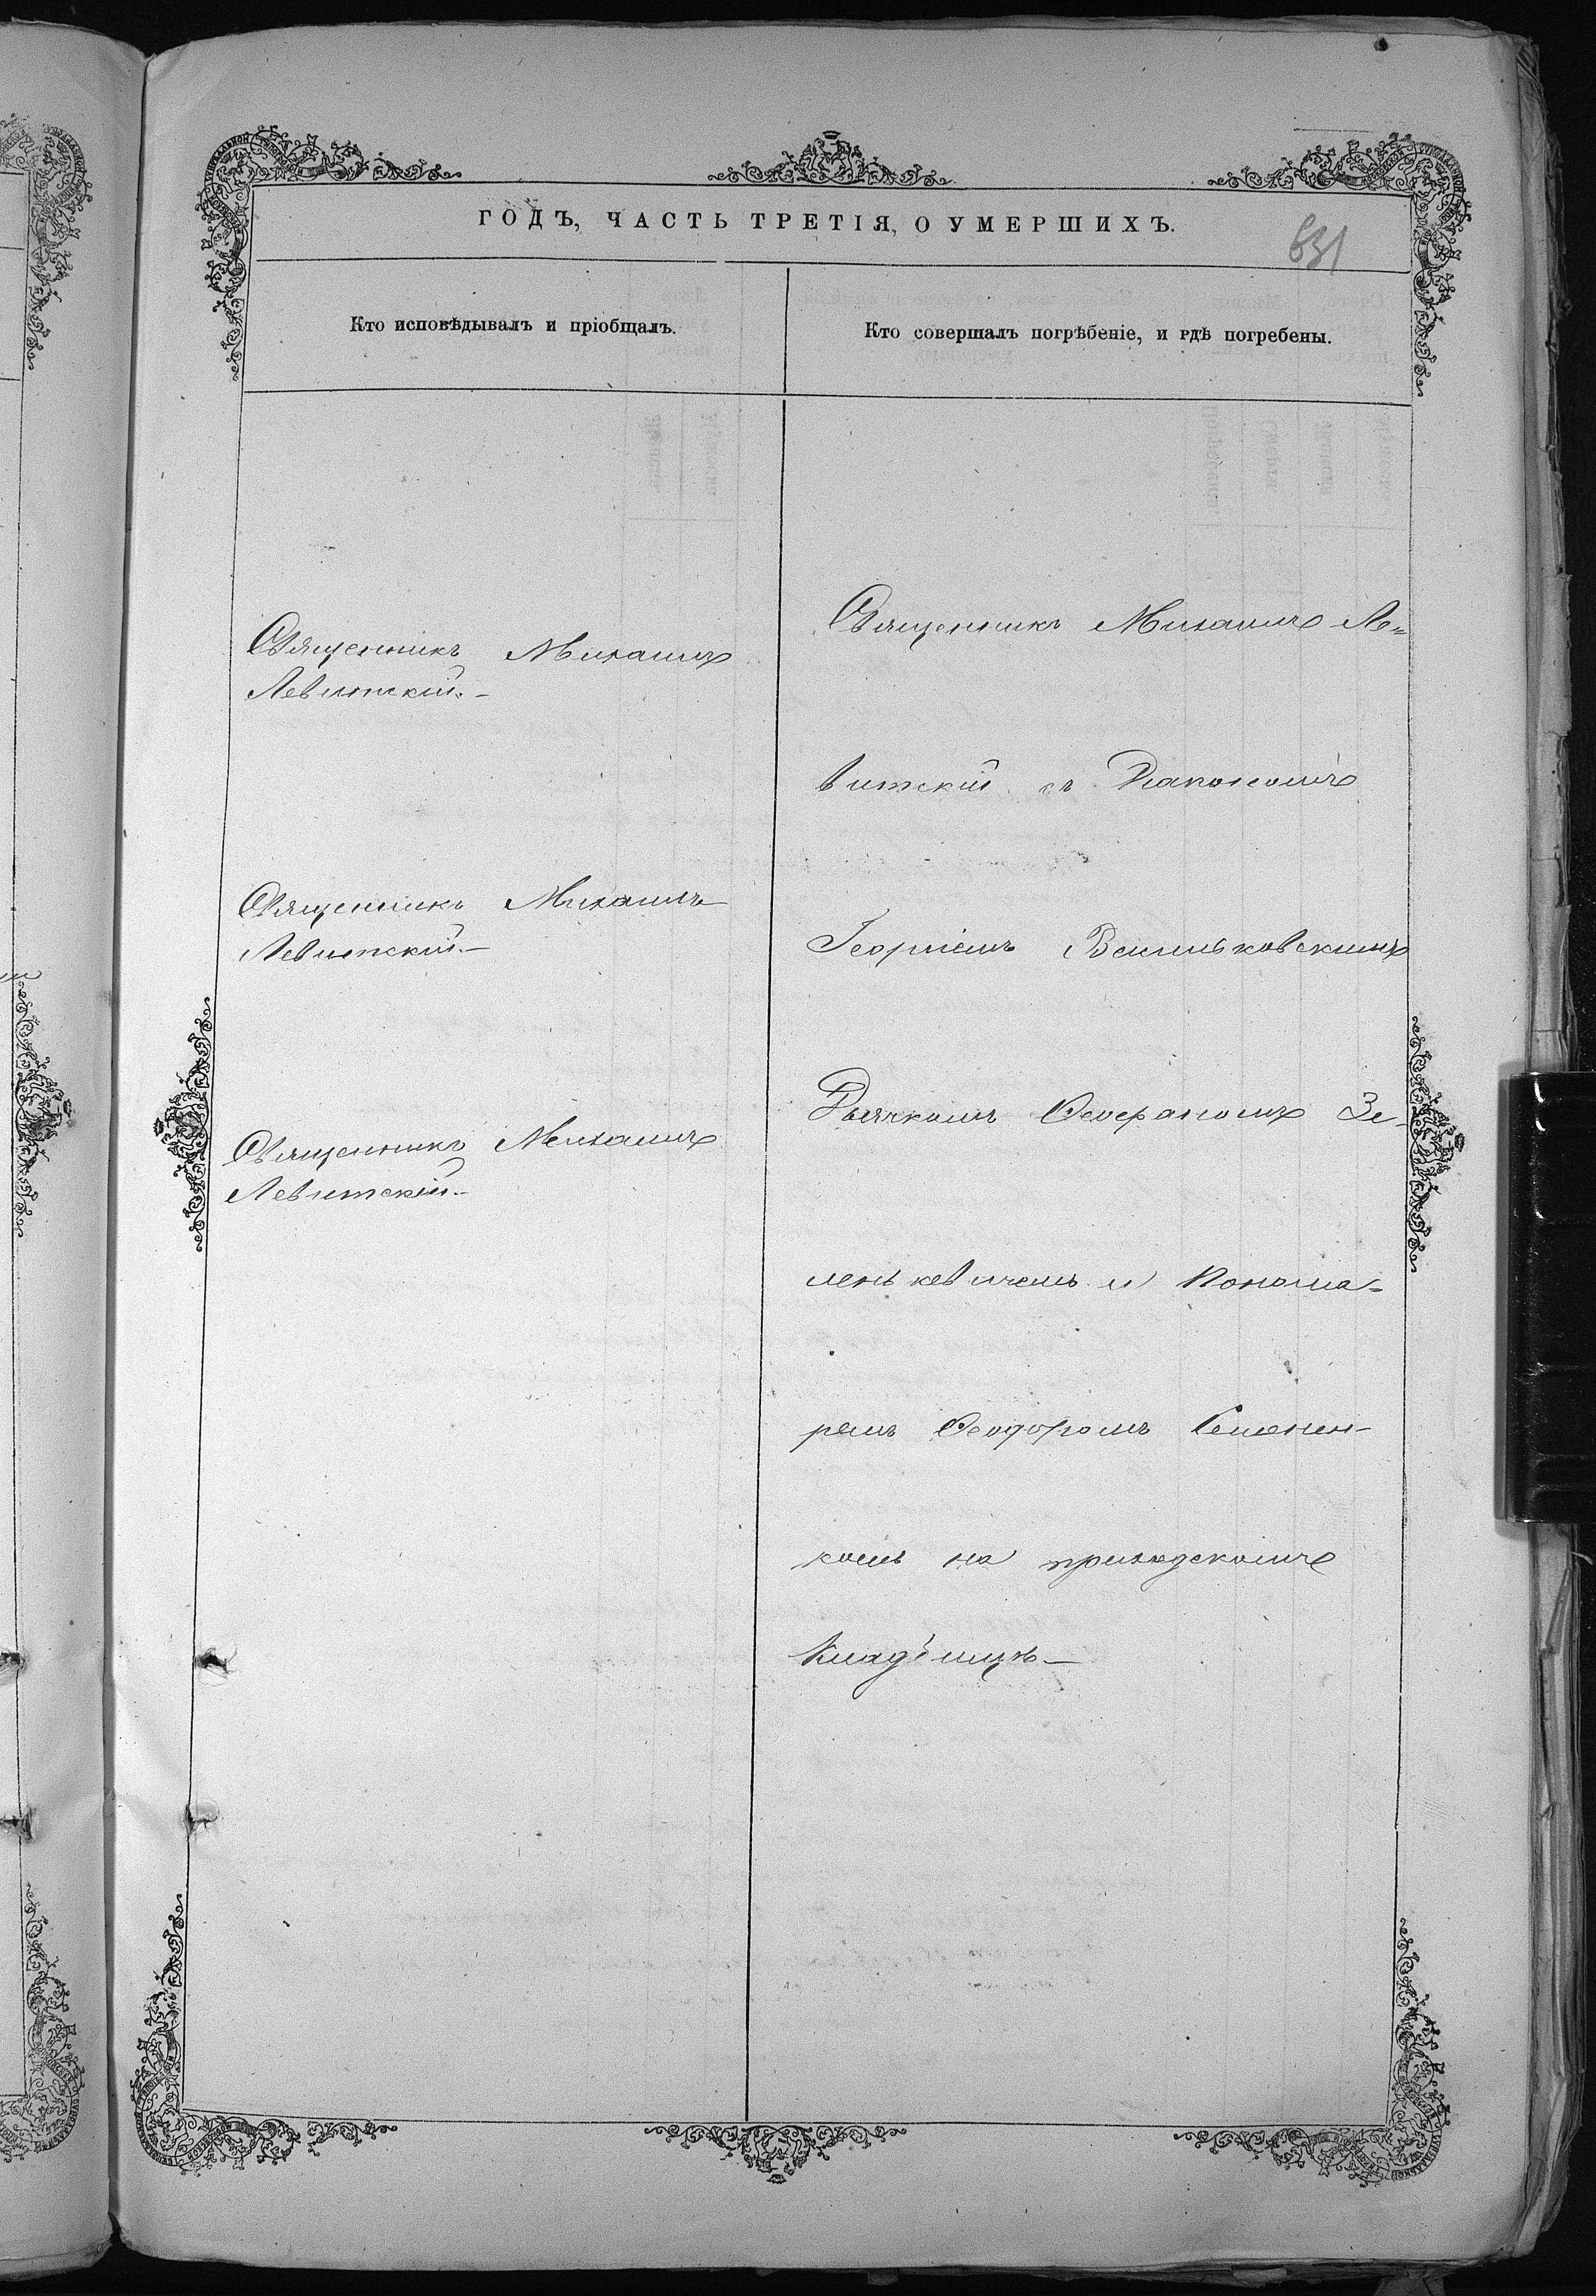 ГОДЪ, ЧАСТЬ ТРЕТІЯ, О УМЕРШИХЪ.
631
Кто исповѣдывалъ и пріобщалъ.
Кто совершалъ погрѣбеніе, и гдѣ погребены.
Священникъ Михаилъ
Левитскій.-
Священникъ Михаилъ
Левитскій.-
Священникъ Михаилъ
Левитскій.-
Священникъ Михаилъ Ле=
витскій съ Діакономъ
Георгіемъ Васильковскимъ
Дьячкомъ Ѳеофаномъ Зе-
ленькевичемъ и Понома=
ремъ Ѳеодоромъ Семенен-
комъ на приходскомъ
Кладбищѣ-